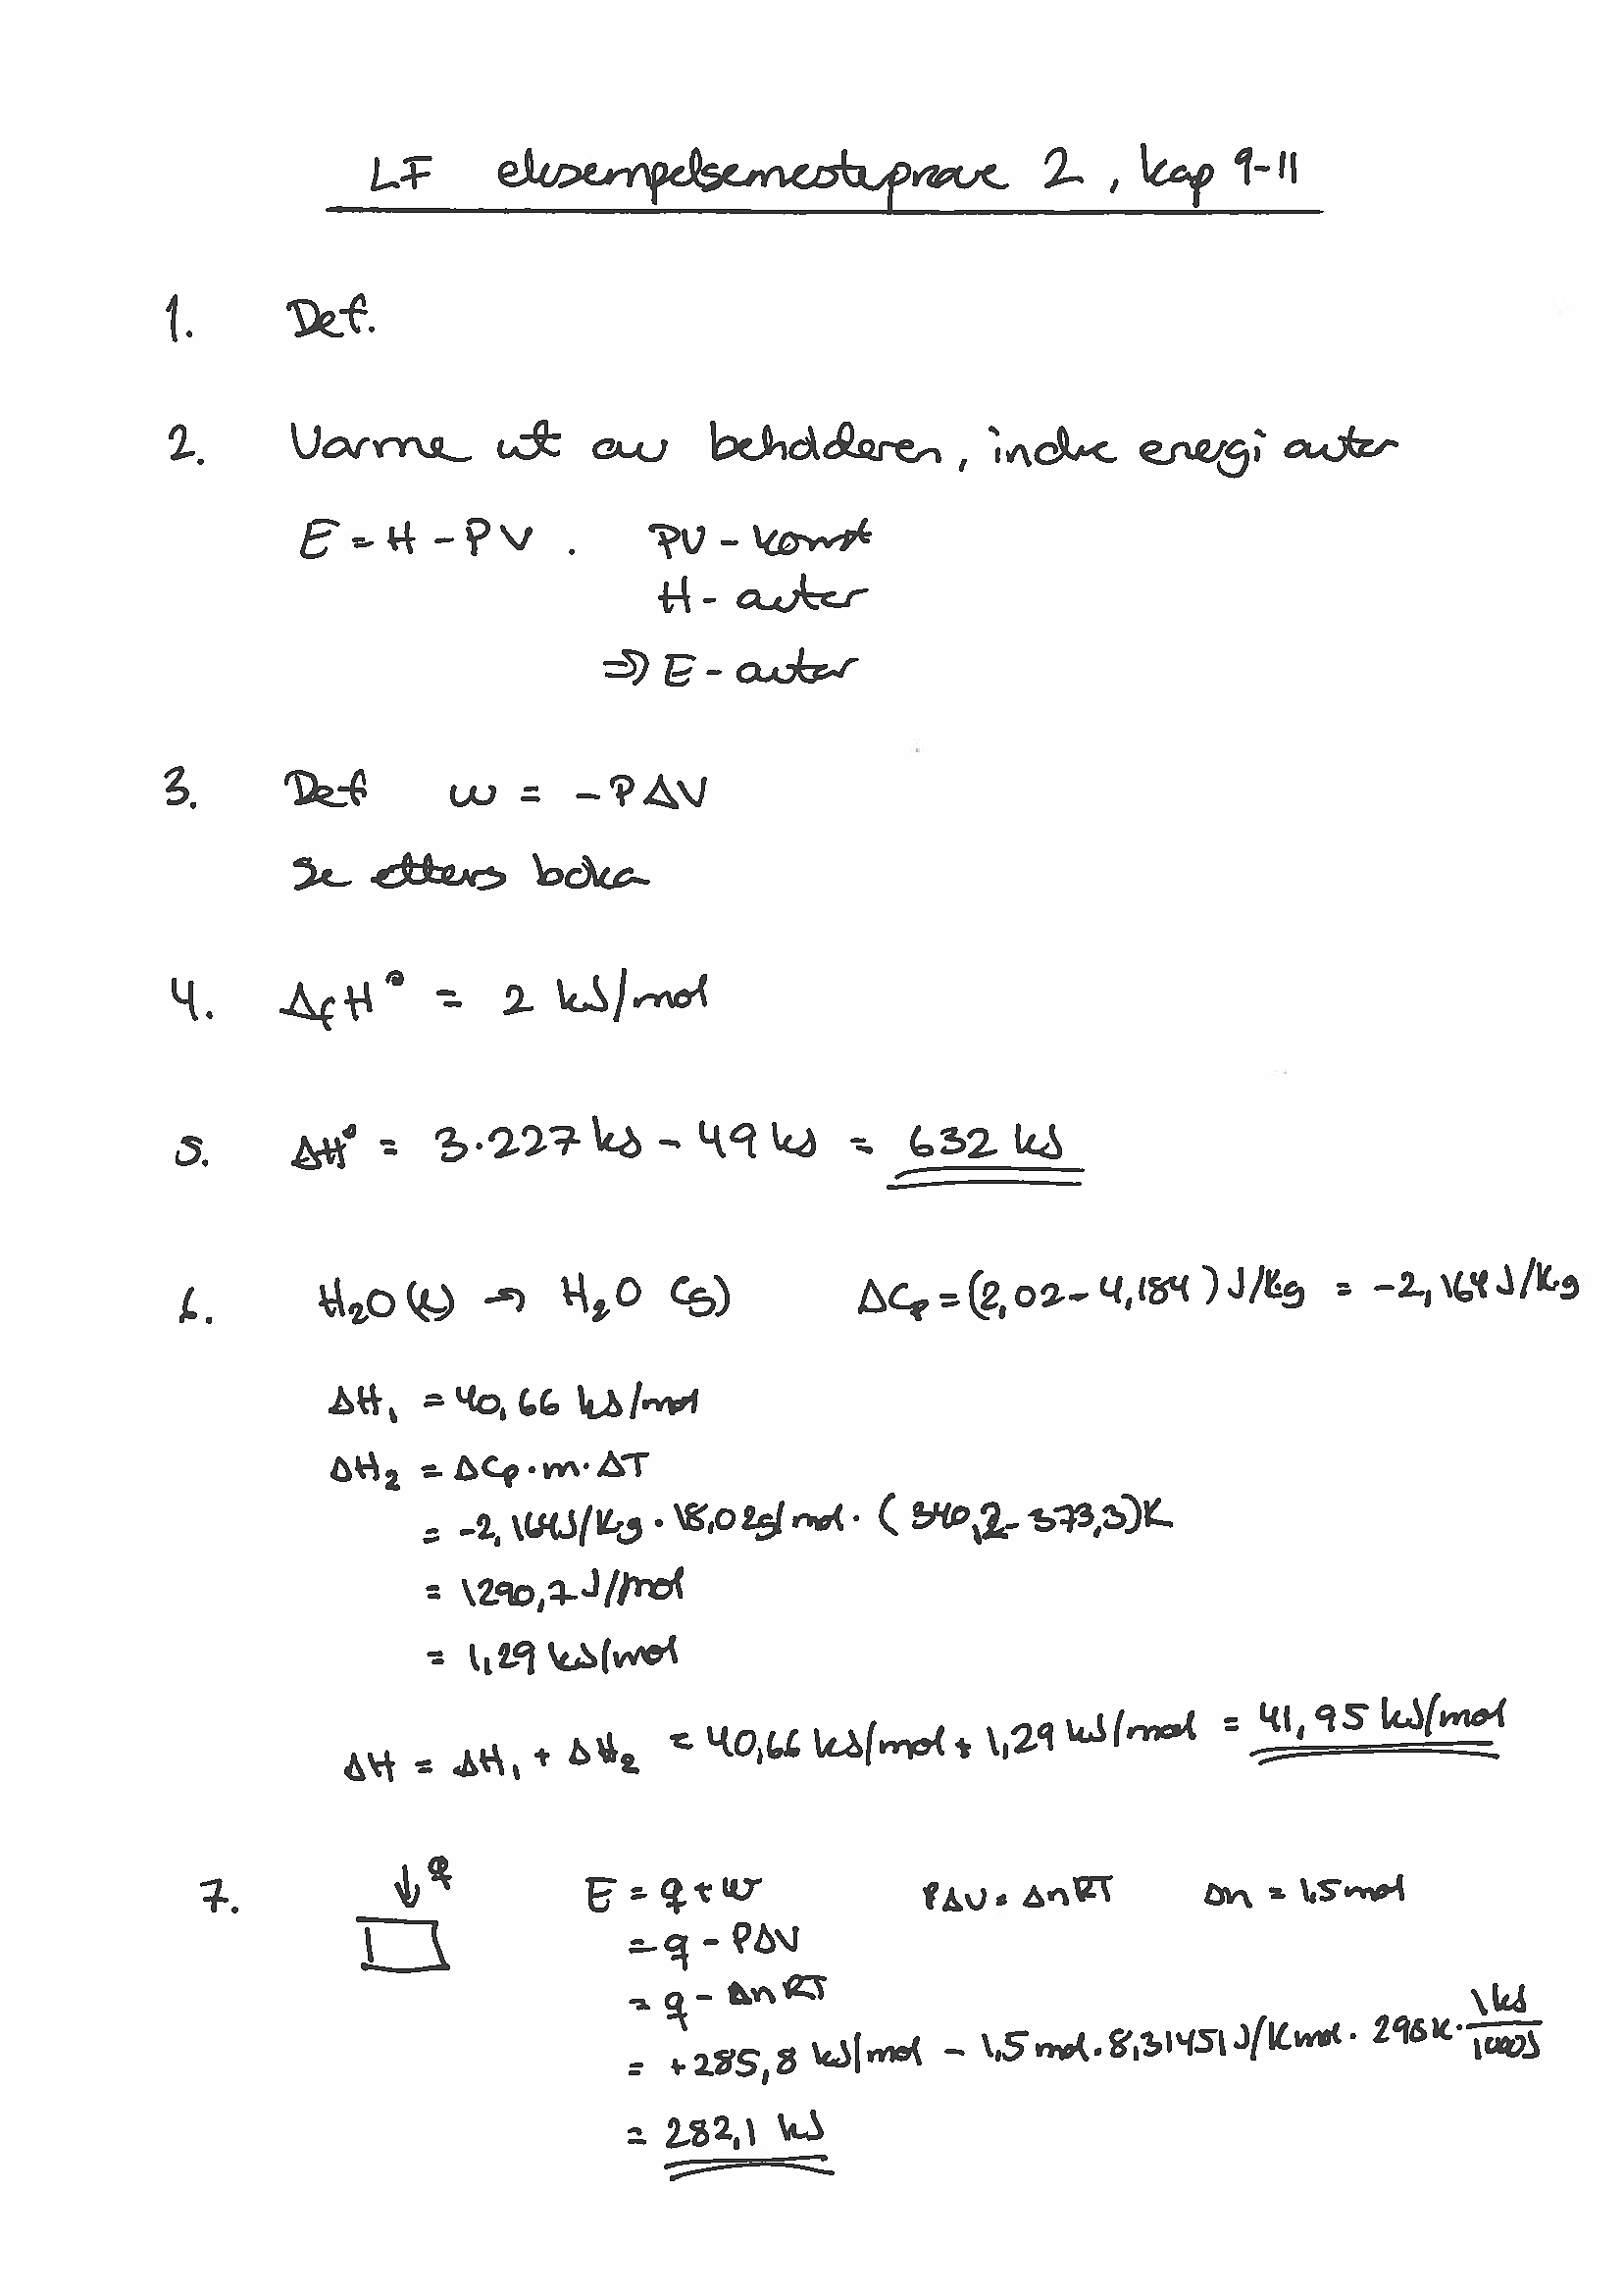 LF eksempelsemesterprøve 2, kap 9-11
1. Def.
2. Varme ut av beholderen, indre energi avtar
E = H - PV . PV - konst
H - avtar
⇒ E - avtar
3. Def w = -PΔV
Se etters boka
4. ΔfH° = 2 kJ/mol
5. ΔH° = 3·227 kJ - 49 kJ = 632 kJ
6. H₂O (l) → H₂O (g) ΔCp = (2,02 - 4,184) J/K·g = -2,164 J/K·g
ΔH₁ = 40,66 kJ/mol
ΔH₂ = ΔCp·m·ΔT
= -2,164 J/K·g · 18,02 g/mol · (340,2 - 373,3)K
= 1290,7 J/mol
= 1,29 kJ/mol
ΔH = ΔH₁ + ΔH₂ = 40,66 kJ/mol + 1,29 kJ/mol = 41,95 kJ/mol
7. ↓ q E = q + w PΔV = ΔnRT Δn = 1,5 mol
= q - PΔV
= q - ΔnRT
= +285,8 kJ/mol - 1,5 mol · 8,31451 J/K mol · 298 K · 1 kJ/1000 J
= 282,1 kJ